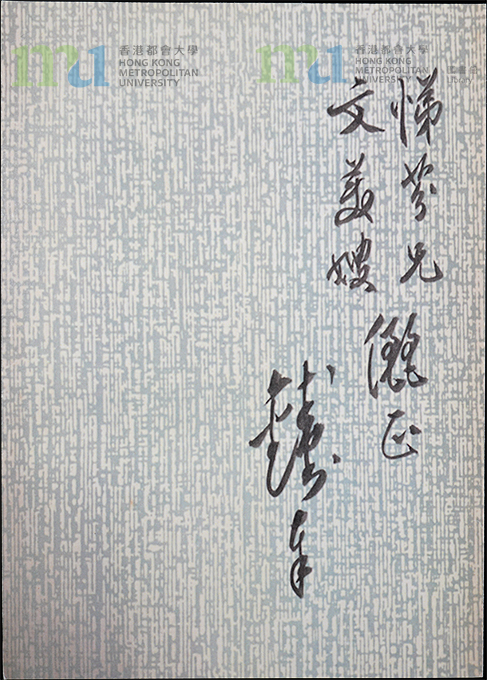 香港都會大學
HONG KONG
METROPOLITAN
UNIVERSITY
香港都會大學
HONG KONG
METROPOLITAN
UNIVERSITY
圖書館
Library
悌芬兄
文美嫂
儷正
奉